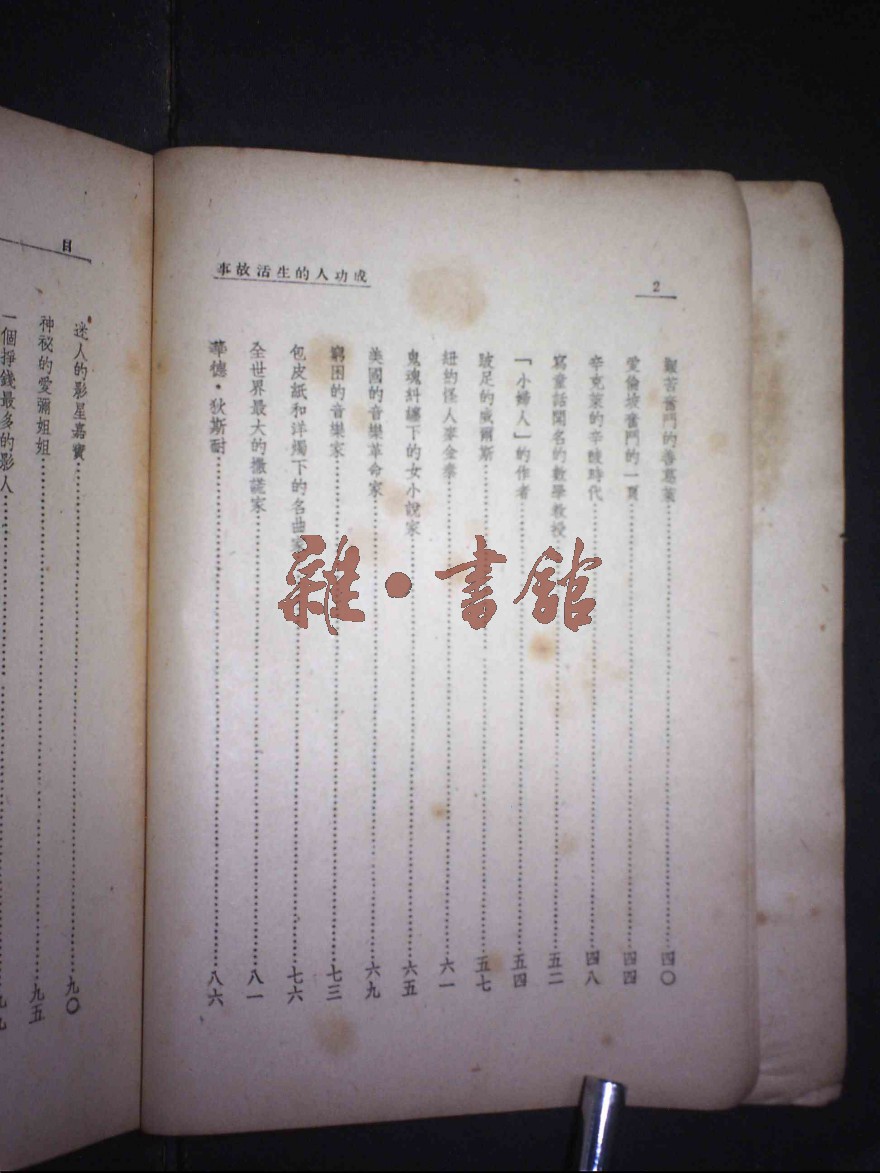 2
成功人的生活故事
艱苦奮鬥的蕭葛萊……四〇
愛倫坡奮鬥的一頁……四四
辛克萊的辛酸時代……四八
寫童話聞名的數學教授……五二
「小婦人」的作者……五四
跛足的威爾斯……五七
紐約怪人麥金泰……六一
鬼魂糾纏下的女小說家……六五
美國的音樂革命家……六九
窮困的音樂家……七三
包皮紙和洋燭下的名曲……七六
全世界最大的撒謊家……八一
華德·狄斯耐……八六
目
迷人的影星嘉寶……九〇
神祕的愛彌姐姐……九五
一個掙錢最多的影人……九九
雜·書館